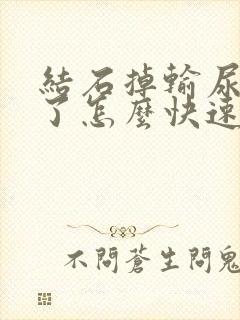 結石掉輸尿
了怎麼快速
不問蒼生問鬼